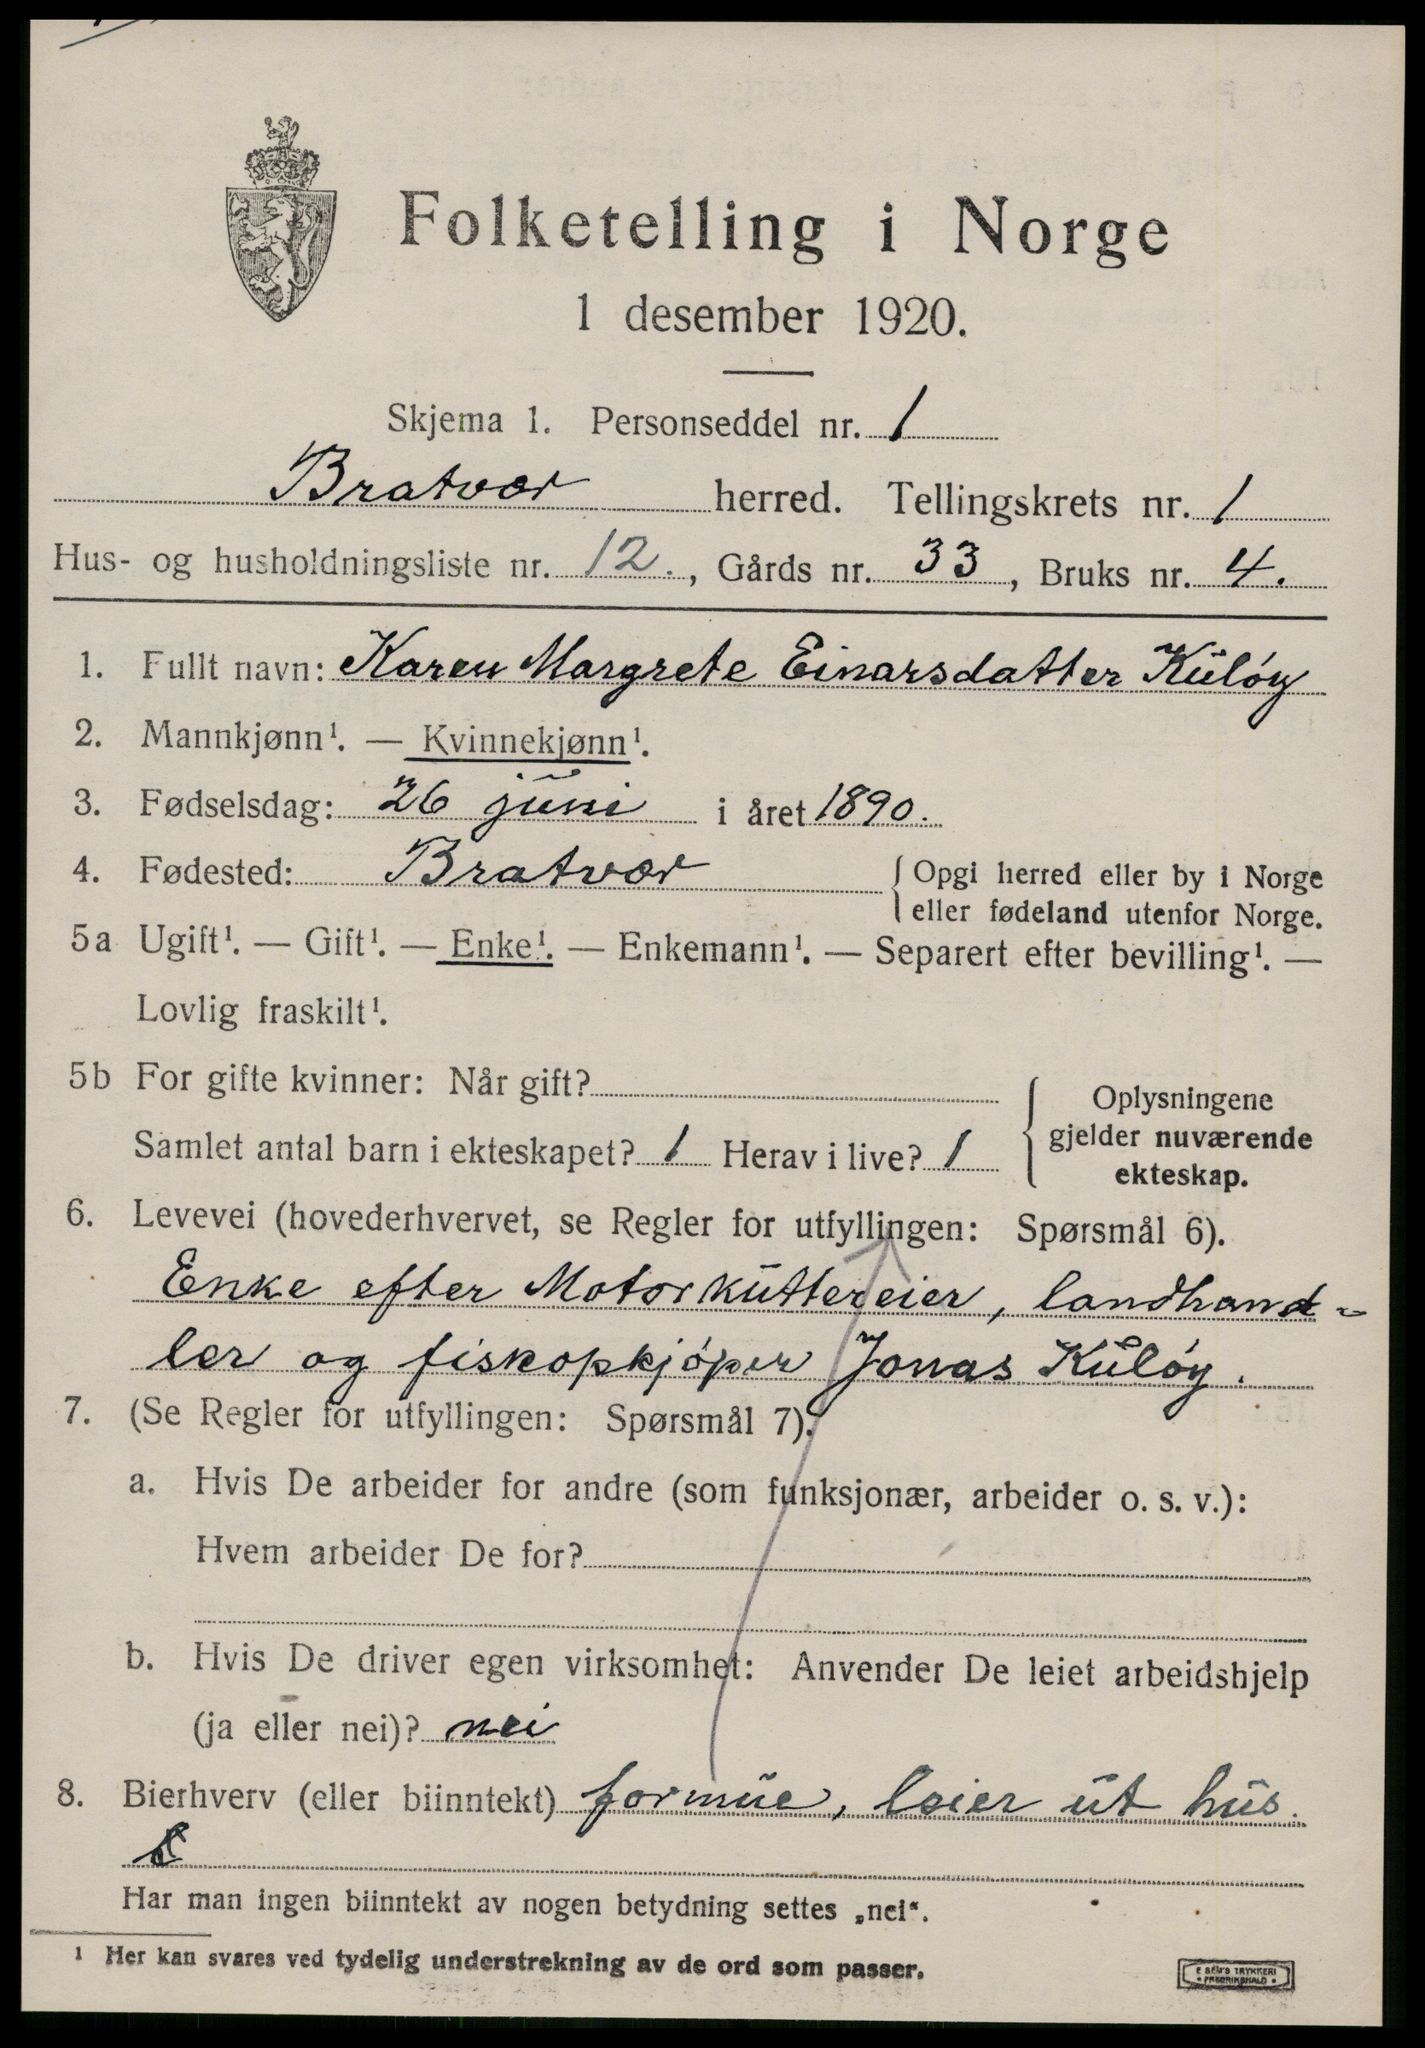 Folketelling i Norge
1 desember 1920.
Skjema 1. Personseddel nr. 1
Bratvær herred. Tellingskrets nr. 1
Hus- og husholdningsliste nr. 12., Gårds nr. 33, Bruks nr. 4.
1. Fullt navn: Karen Margrete Einarsdatter Kŭløy
2. Mannkjønn¹. — Kvinnekjønn¹.
3. Fødselsdag: 26 jŭni i året 1890.
4. Fødested: Bratvær { Opgi herred eller by i Norge
eller fødeland utenfor Norge.
5a Ugift¹. — Gift¹. — Enke¹. — Enkemann¹. — Separert efter bevilling¹. —
Lovlig fraskilt¹.
5b For gifte kvinner: Når gift?
Samlet antal barn i ekteskapet? 1 Herav i live? 1
{ Oplysningene
gjelder nuværende
ekteskap.
6. Levevei (hovederhvervet, se Regler for utfyllingen: Spørsmål 6).
Enke efter Motorkŭttereier, landhand-
ler og fiskopkjøper Jonas Kŭløy.
7. (Se Regler for utfyllingen: Spørsmål 7).
a. Hvis De arbeider for andre (som funksjonær, arbeider o. s. v.):
Hvem arbeider De for?
b. Hvis De driver egen virksomhet: Anvender De leiet arbeidshjelp
(ja eller nei)? nei
8. Bierhverv (eller biinntekt) formŭe, leier ŭt hŭs.
Har man ingen biinntekt av nogen betydning settes „nei“.
¹ Her kan svares ved tydelig understrekning av de ord som passer.
E SEM'S TRYKKERI
• FREDRIKSHALD •